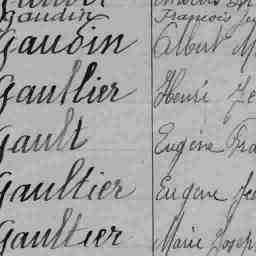 Gaudin François
Gaudin Albert M
Gaullier Henri Je
Gault Eugène Fra
Gaultier Eugène Je
Gaultier Marie Joseph